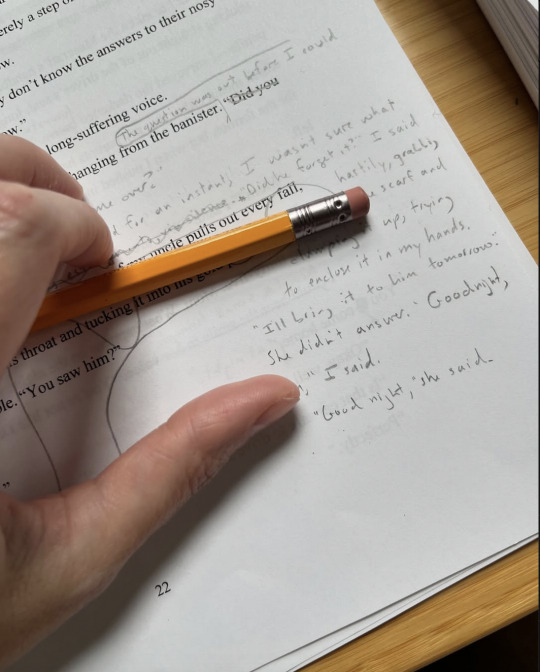 erely a step o
y don't know the answers to their nosy
w."
long-suffering voice.
The question was out before I could
hanging from the banister. "Did you
me over?"
d for an instant; I wasn't sure what
Did he forget it?" I said
hastily, grabb
uncle pulls out every fall,
scarf and
up, trying
s throat and tucking it into his
to enclose it in my hands.
"I'll bring it to him tomorrow."
le. "You saw him?"
She didn't answer. "Goodnight,
" I said.
"Good night," she said.
22